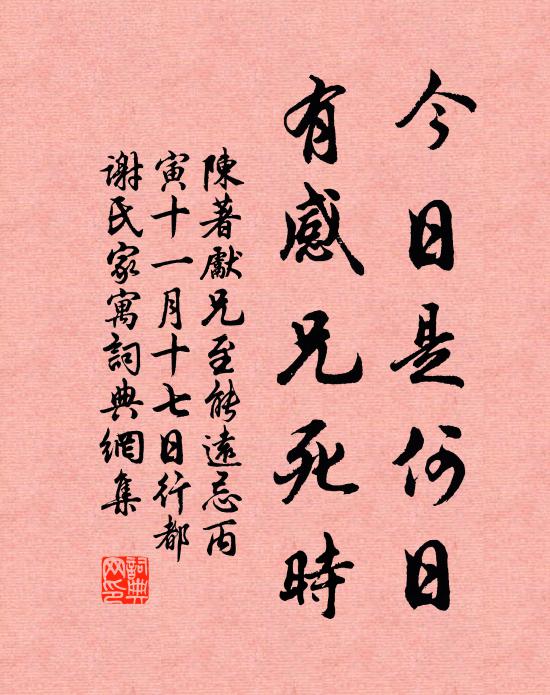 今日是何日
有感兄死時
陳著獻兄至能遠忌丙
寅十一月十七日行都
謝氏家寓詞典網集
詞典
网印